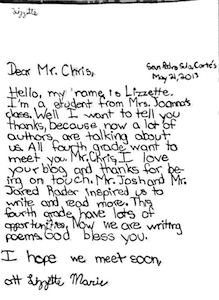 Lizzette
San Pedro Sula, Cortés
May 21, 2013
Dear Mr. Chris,
Hello, my name is Lizzette.
I'm a student from Mrs. Joanna's
class. Well I want to tell you
thanks, because now a lot of
authors are talking about
us. All fourth grade want to
meet you. Mr. Chris, I love
your blog and thanks for be-
ing on touch. Mr. Josh and Mr.
Jared Rador inspired us to
write and read more. This
fourth grade have lots of
opportunities. Now we are writing
poems. God bless you.
I hope we meet soon,
att Lizzette Marie